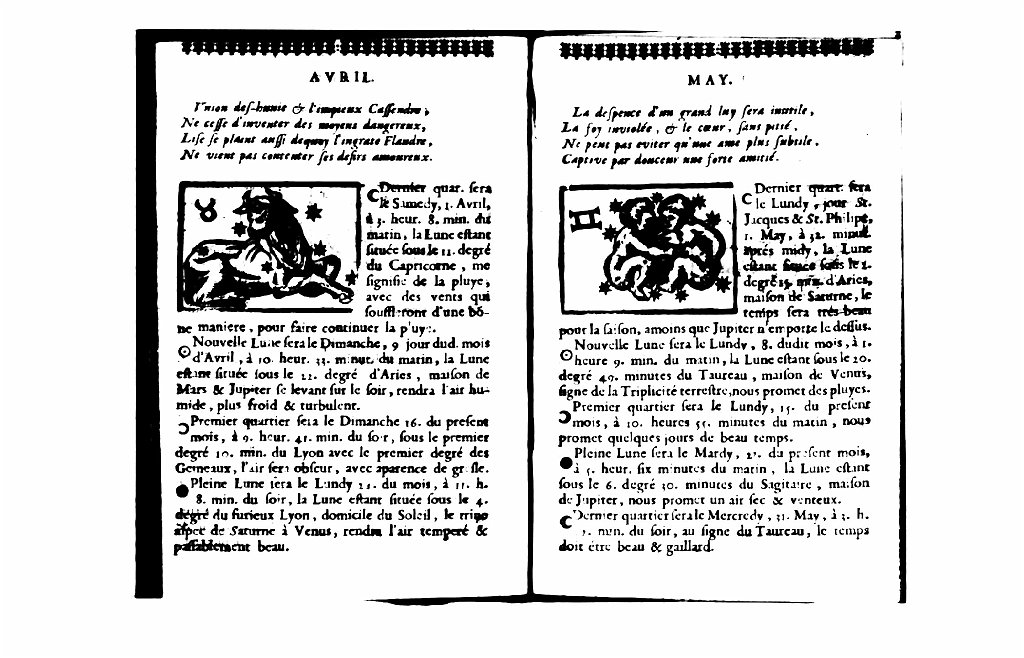 AVRIL.
Vnion des-hunie & l'impieux Cassendre,
Ne cesse d'inventer des moyens dangereux,
Lise se plaint aussi dequoy l'ingrate Flandre,
Ne vient pas contenter ses desirs amoureux.
Dernier quar. sera
le Samedy, 1. Avril,
à 3. heur. 8. min. du
matin, la Lune estant
située sous le 11. degré
du Capricorne, me
signifie de la pluye,
avec des vents qui
souffleront d'une bõ-
ne maniere, pour faire continuer la pluye.
Nouvelle Lune sera le Dimanche, 9 jour dud. mois
d'Avril, à 10. heur. 33. minut. du matin, la Lune
estant située sous le 12. degré d'Aries, maison de
Mars & Jupiter se levant sur le soir, rendra l'air hu-
mide, plus froid & turbulent.
Premier quartier sera le Dimanche 16. du present
mois, à 9. heur. 41. min. du soir, sous le premier
degré 10. min. du Lyon avec le premier degré des
Gemeaux, l'air sera obscur, avec aparence de gresle.
Pleine Lune sera le Lundy du mois, à 11. h.
8. min. du soir, la Lune estant située sous le 4.
degré du furieux Lyon, domicile du Soleil, le trine
aspec de Saturne à Venus, rendra l'air temperé &
passablement beau.
MAY.
La despence d'un grand luy sera inutile,
La foy inviolée, & le cœur, sans pitié,
Ne peut pas eviter qu'une ame plus subtile,
Captive par douceur une forte amitié.
Dernier quart. sera
le Lundy, jour St.
Jacques & St. Philipe,
1. May, à 32. minut.
aprés midy, la Lune
estant sous le 1.
degré 15. min. d'Aries,
maison de Saturne, le
temps sera trés-beau
pour la saison, amoins que Jupiter n'emporte le dessus.
Nouvelle Lune sera le Lundy, 8. dudit mois, à 1.
heure 9. min. du matin, la Lune estant sous le 20.
degré 49. minutes du Taureau, maison de Venus,
signe de la Triplicité terrestre, nous promet des pluyes.
Premier quartier sera le Lundy, 15. du present
mois, à 10. heures 55. minutes du matin, nous
promet quelques jours de beau temps.
Pleine Lune sera le Mardy, du present mois,
à 5. heur. six minutes du matin, la Lune estant
sous le 6. degré 30. minutes du Sagitaire, maison
de Jupiter, nous promet un air sec & venteux.
Dernier quartier sera le Mercredy, 31. May, à 3. h.
min. du soir, au signe du Taureau, le temps
doit étre beau & gaillard.